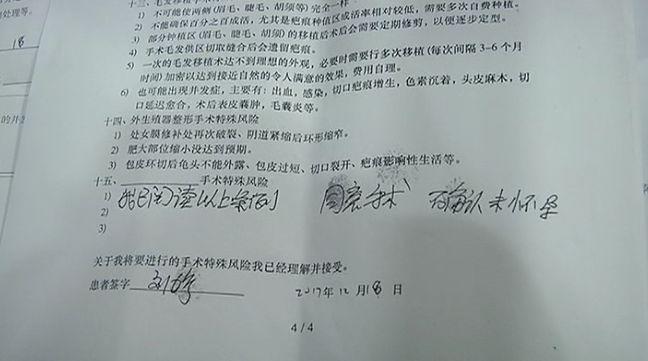 十三、毛发移植手术
1) 不可能使两侧(眉毛、睫毛、胡须等)完全一样
2) 不能确保百分之百成活，尤其是疤痕种植区成活率相对较低，需要多次自费种植。
3) 部分种植区(眉毛、睫毛、胡须)的移植后术后会需要定期修剪，以便逐步定型。
4) 手术毛发供区切取缝合后会遗留疤痕。
5) 一次的毛发移植术达不到理想的外观，必要时需要行多次移植(每次间隔 3-6 个月
时间)加密以达到接近自然的令人满意的效果，费用自理。
6) 也可能出现并发症，主要有：出血，感染，切口疤痕增生，色素沉着，头皮麻木，切
口延迟愈合，术后表皮囊肿，毛囊炎等。
处理等。
18
十四、外生殖器整形手术特殊风险
1) 处女膜修补处再次破裂、阴道紧缩后环形缩窄。
2) 肥大部位缩小没达到预期。
3) 包皮环切后龟头不能外露、包皮过短、切口裂开、疤痕影响性生活等。
十五、 手术特殊风险
1) 我已阅读以上条例 同意手术 确认未怀孕
2)
3)
关于我将要进行的手术特殊风险我已经理解并接受。
患者签字 刘
2017年12月18日
4/4